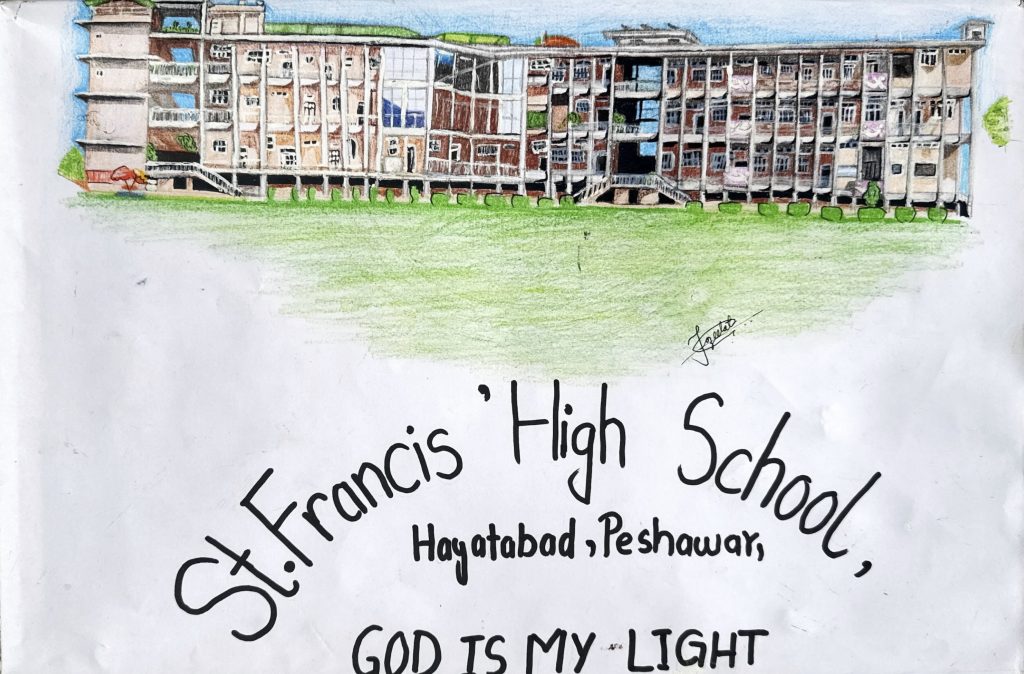 St. Francis' High School,
Hayatabad, Peshawar,
GOD IS MY LIGHT